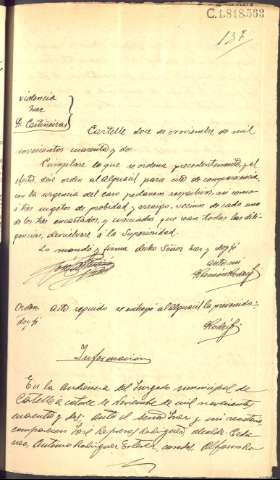 C.1.818.563
137
Providencia
Juez
Sr. Castiñeiras
Cartelle doce de noviembre de mil
novecientos cuarenta y dos
Cumplase lo que se ordena precedentemente, y al
efecto, dése orden al Alguacil para cita de comparecencia,
con la urgencia del caso
tres sujetos de probidad y arraigo, vecinos de cada uno
de los tres encartados, y evacuadas que sean todas las dili-
gencias, devuélvase a la Superioridad.
Lo mandó y firma dicho Señor Juez y doy fé
ante mi
Orden. Acto seguido se entregó al Alguacil la prevenida
doy fé
Información
En la Audiencia del Juzgado municipal de
Cartelle a catorce de Noviembre de mil novecientos
cuarenta y dos, ante el Señor Juez y mi secretario
comparecen José Rodríguez Alcalde
Antonio Rodriguez